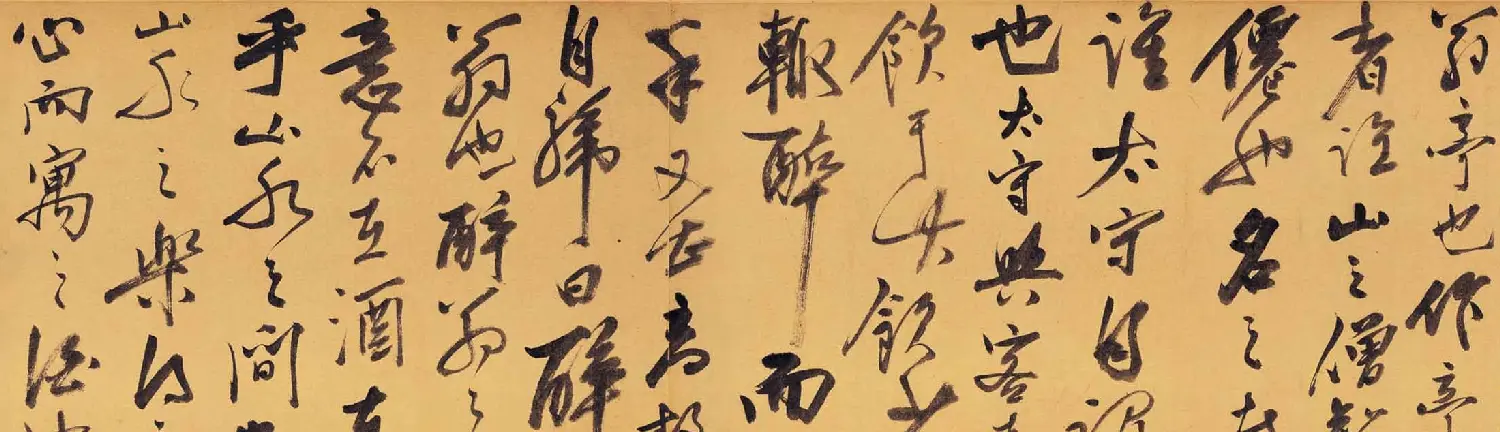 翁亭也作亭
者誰山之僧智
僊也名之者
誰太守自謂
也太守與客
飲于此飲少
輒醉而
年又最高故
自號曰醉
翁也醉翁之
意不在酒在
乎山水之間也
山水之樂得之
心而寓之酒也